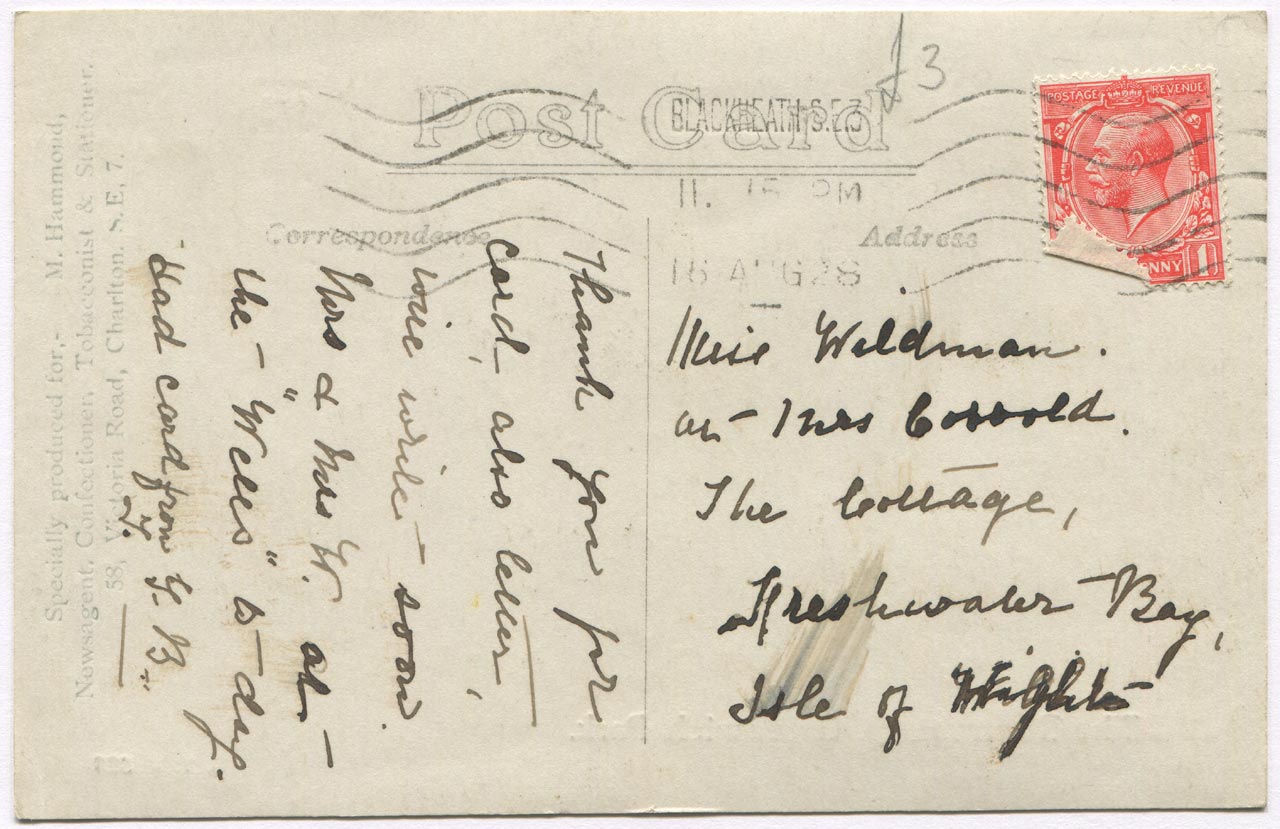 £3
Post Card
BLACKHEATH S.E.3
11. 15 PM
16 AUG 28
POSTAGE REVENUE
NNY 1
Correspondence
Address
Thank you for
card, also letter,
will write soon.
Mrs & Miss W. at
the "Wells" to-day.
Had card from G. B.
Miss Wildman.
at Mrs
The Cottage,
Freshwater Bay,
Isle of Wight
Specially produced for,- M. Hammond,
Newsagent, Confectioner, Tobacconist & Stationer.
58, Victoria Road, Charlton. S.E, 7.